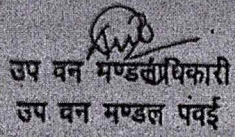 उप वन मण्डलाधिकारी
उप वन मण्डल पवई